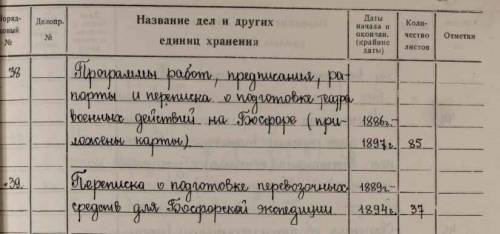 Поряд-
ковый
№
Делопр.
№
Название дел и других
единиц хранения
Даты
начала и
окончан.
(крайние
даты)
Коли-
чество
листов
Отметки
38
Программы работ, предписания, ра-
порты и переписка о подготовке театра
военных действий на Босфоре (при- 1886г.-
ложены карты). 1897г. 85
39. Переписка о подготовке перевозочных 1889г.-
средств для Босфорской экспедиции. 1894г. 37